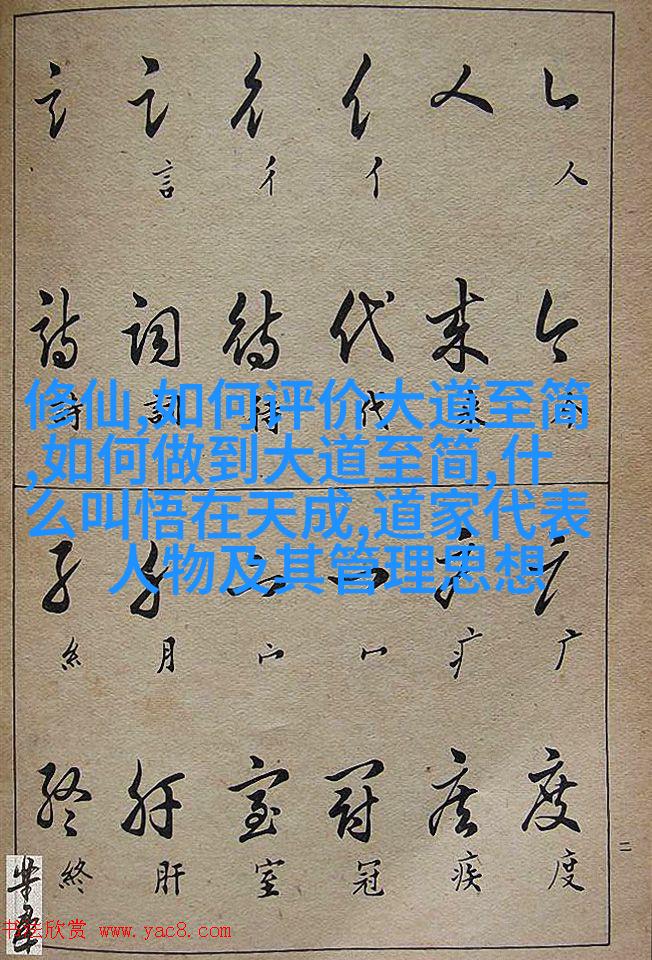 言 彳 亻 人
詩 詞 待 代 来 今
修仙,如何评价大道至简
,如何做到大道至简,什
么叫悟在天成,道家代表
人物及其管理思想
糹 月 宀 冖 疒 广
終 肝 室 冠 疾 度
終 肝 室 冠 疾 度
二
书法欣赏 www.yac8.com